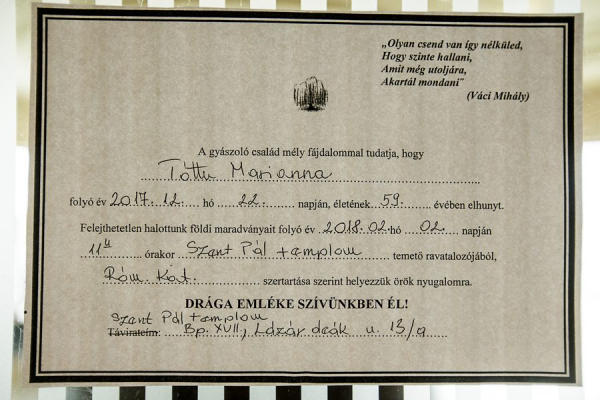 „Olyan csend van így nélküled,
Hogy szinte hallani,
Amit még utoljára,
Akartál mondani˝
(Váci Mihály)
A gyászoló család mély fájdalommal tudatja, hogy
Tóth Marianna
folyó év 2017. 12. hó 22. napján, életének 59. évében elhunyt.
Felejthetetlen halottunk földi maradványait folyó év 2018. 02. hó 02. napján
11 órakor Szent Pál templom temető ravatalozójából,
Róm. Kat. szertartása szerint helyezzük örök nyugalomra.
DRÁGA EMLÉKE SZÍVÜNKBEN ÉL!
Szent Pál templom
Távirateim: Bp. XVII., Lázár deák u. 13/a